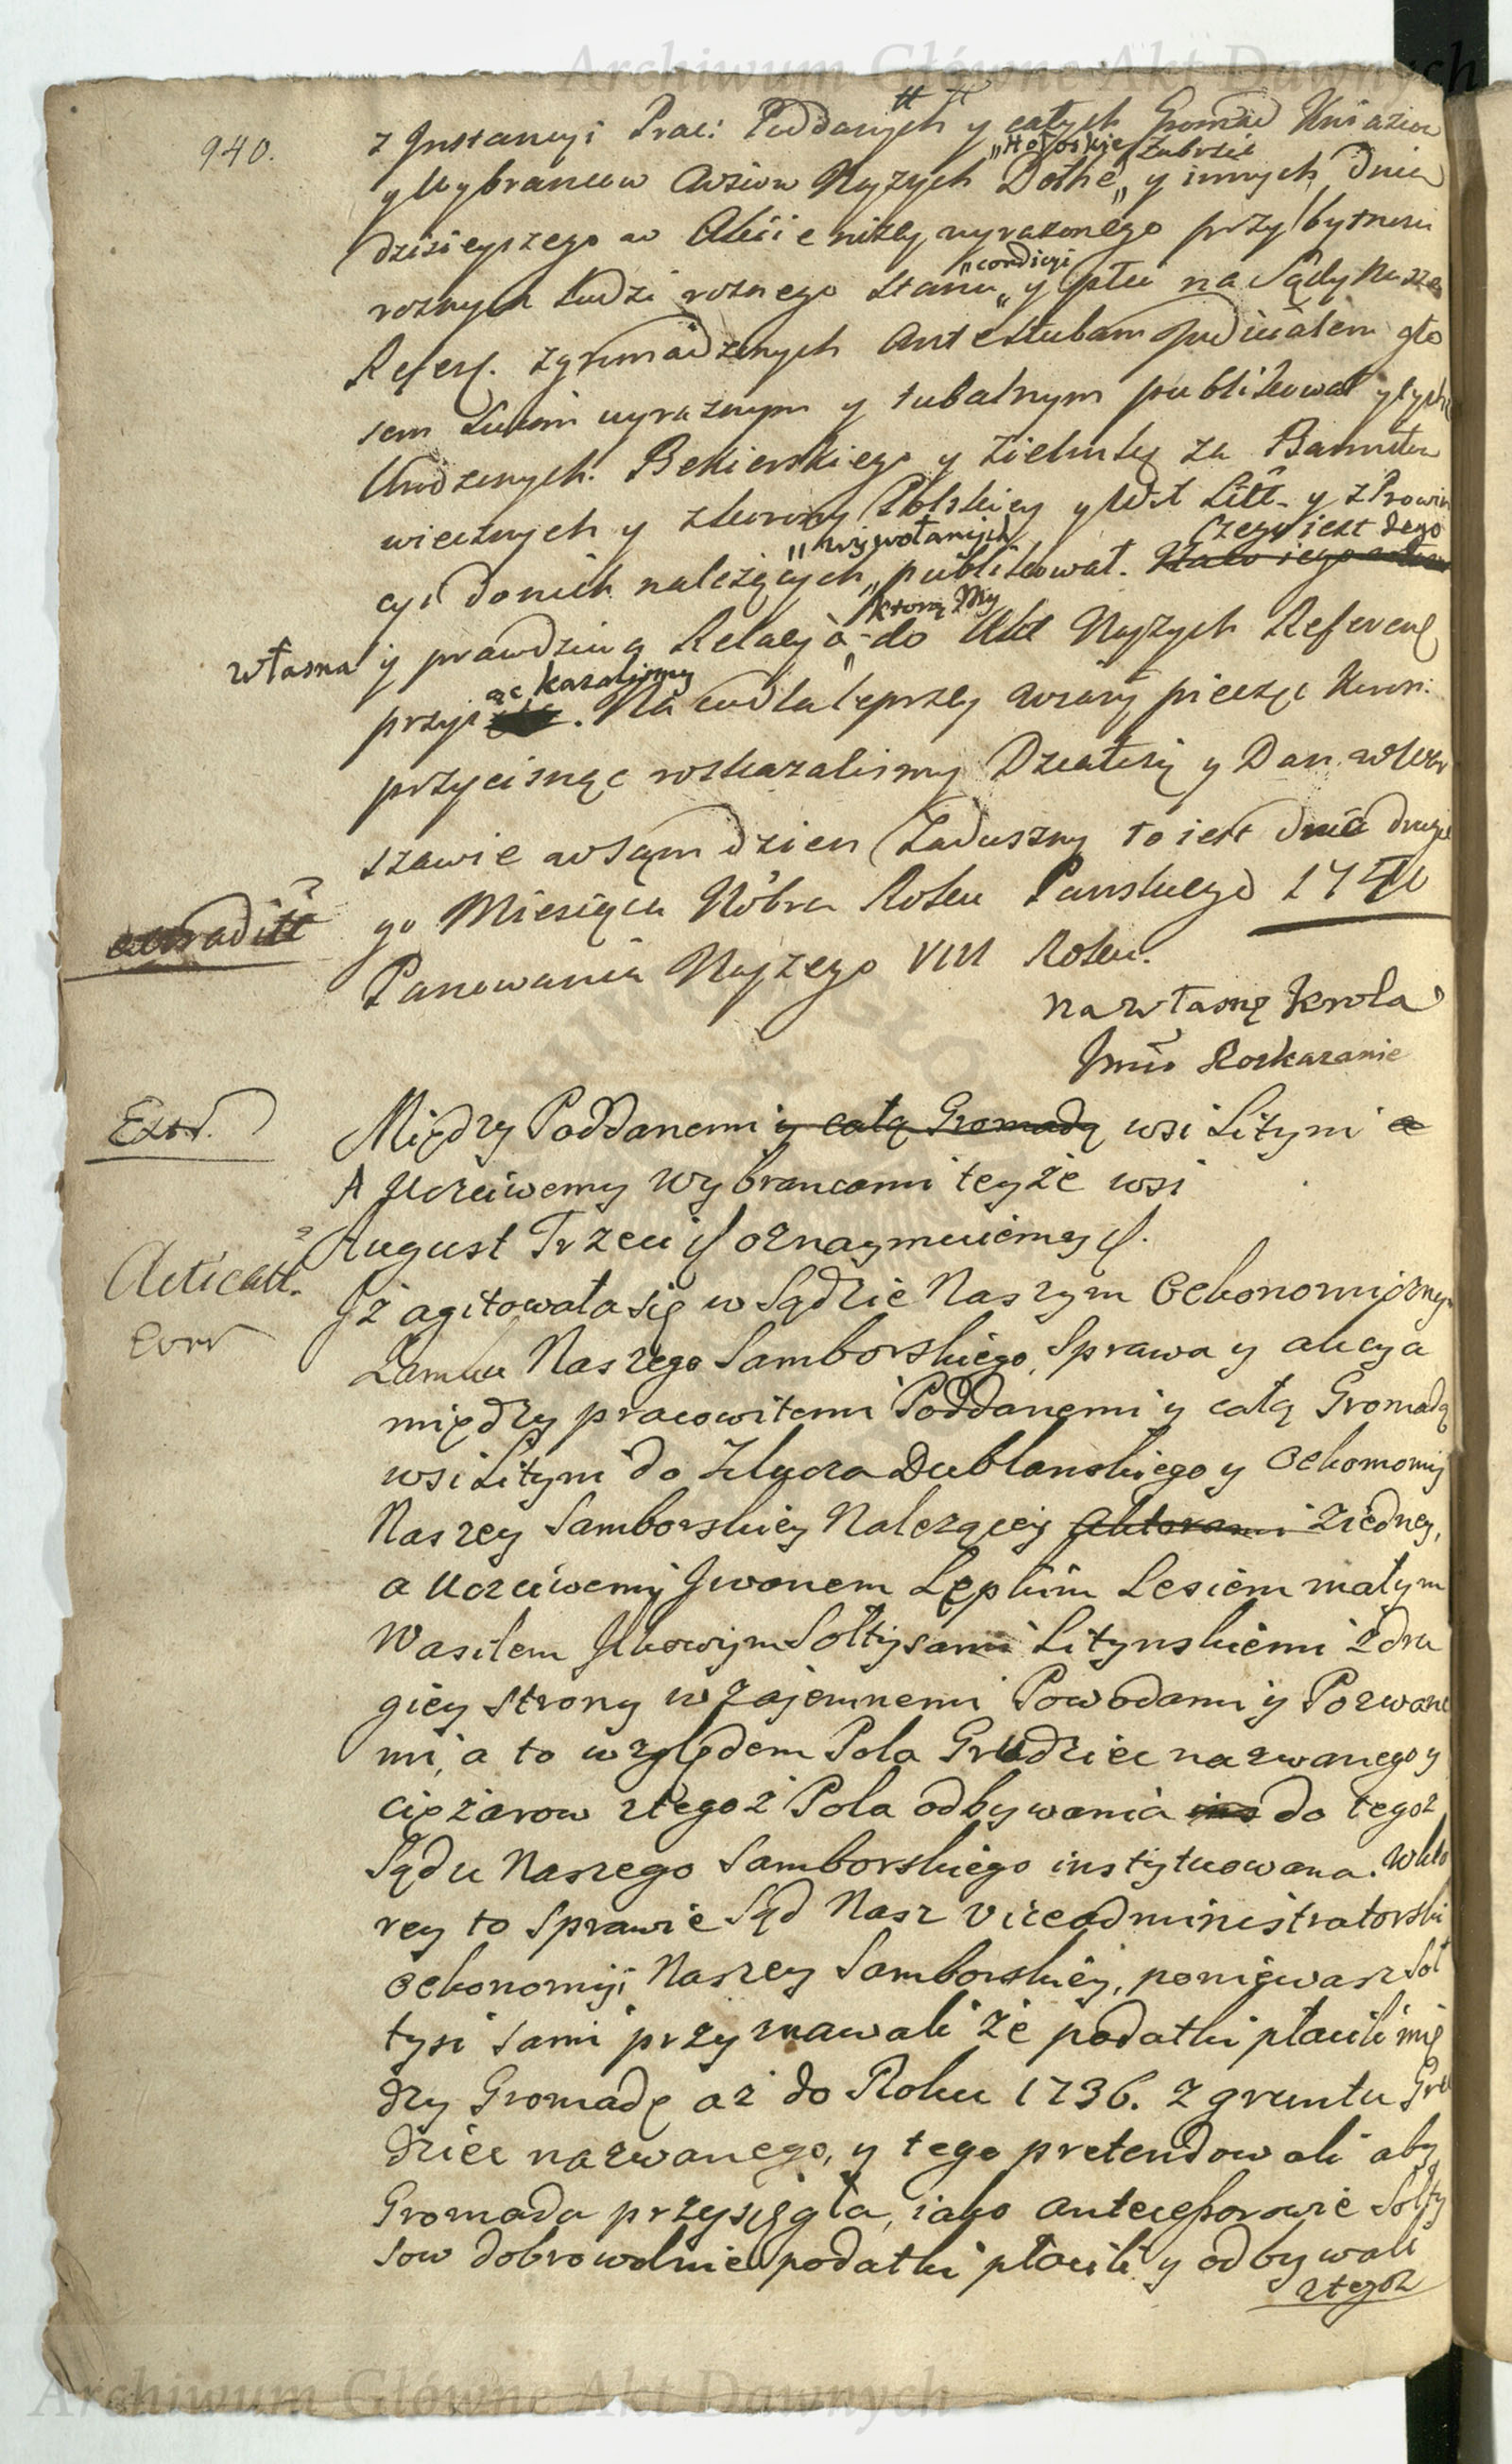 Archiwum Główne Akt Dawnych
940.
z Instancyi Prac: Poddanych y całych Gromad Kniaziow
"Hołoskie Zubrzie
y Wybrancow wsiow Nszych Dołhe „ y innych, dnia
dzisieyszego w Akcie niżey wyrażonego przy bytnosci
"condicyi
roznych Ludzi roznego stanu „ y płci na Sądy Nasze
Refer. zgromadzonych ante stubam Judicialem gło
sem swoim wyraznym y tubalnym publikował y tych
Urodzonych Bekierskiego y Zielonkę za Bannitow
wiecznych y z korony Polskiey y W.X Litt. y z Prowin
"wywołanych
Czego iest tego
cyi do nich należących „ publikował.
ktorą My
własna y prawdziwa Relacya do Akt Nszych Referen
ąc kazalismy
przyi . Na co dla lepszey wiary pieczęc Koron:
przycisnąc roskazalismy Działo się y Dan w War
szawie w sam dzien Zaduszny to iest dnia drugie
go Miesiąca Nobra Roku Panskiego 1740
Panowania Nszego VIII Roku.
na własne Krola
Jmci Roskazanie
Extrd.
Między Poddanemi y całą Gromadą wsi Lityni a
A Uczciwemy Wybrancami teyże wsi
August Trzeci oznaymuiemy
Acticatt.
Iż agitowała się w Sądzie Naszym Oekonomicznym
Zamku Naszego Samborskiego, Sprawa y akcya
między pracowitemi Poddanemi y całą Gromadą
wsi Lityni do Klucza Dublanskiego y Oekonomij
Naszey Samborskiey Nalezącey Aktorami z iedney,
a Uczciwemi Iwanem Łepkim Lesiem małym
Wasilem Ilkowym Sołtysami Litynskiemi z dru
giey strony wzajemnemi Powodami y Pozwane
mi, a to względem Pola Grudziec nazwanego y
ciężarow z tegoż Pola odbywania do tegoz
Sądu Naszego Samborskiego instytuowana. W kto
rey to Sprawie Sąd Nasz Viceadministratorski
Oekonomij Naszey Samborskiey, poniewasz Soł
tysi sami przyznawali że podatki płacili mię
dzy Gromadę aż do Roku 1736. z gruntu Gru
dziec nazwanego, y tego pretendowali aby
Gromada przysięgła, iako antecessorowie Sołty
sow dobrowolnie podatki płacili y odbywali
z tegoz
Archiwum Główne Akt Dawnych